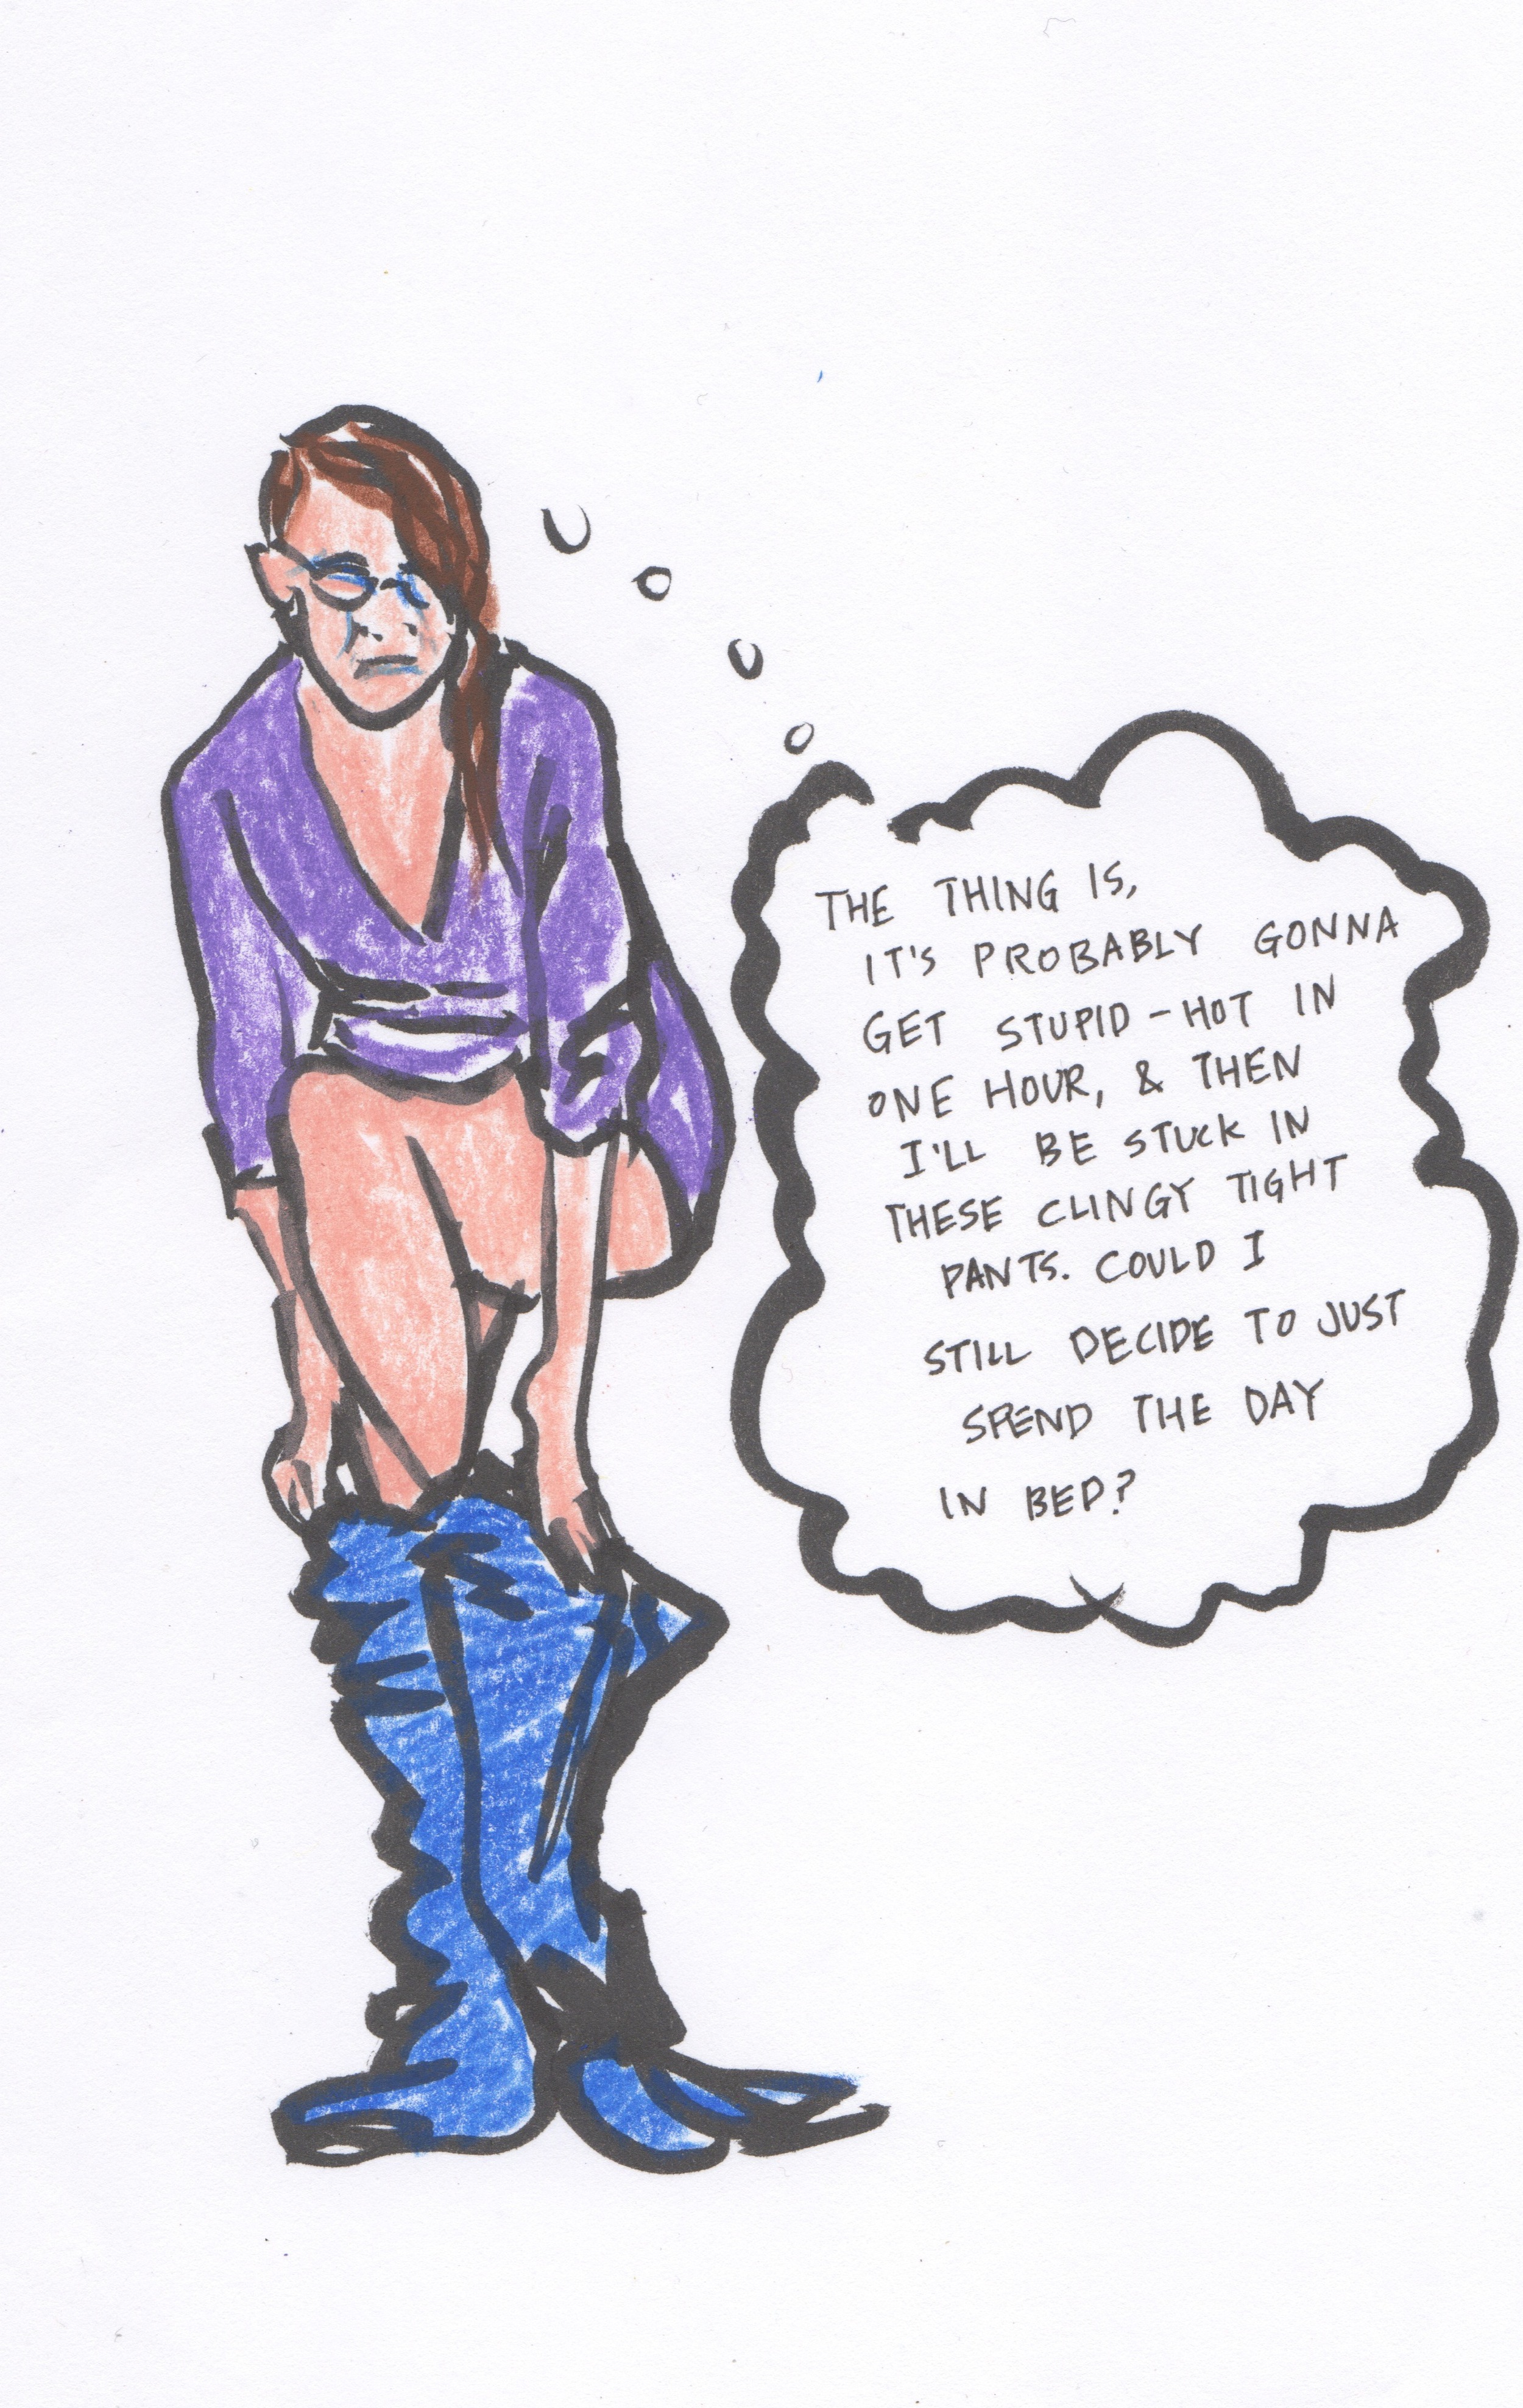 THE THING IS,
IT'S PROBABLY GONNA
GET STUPID-HOT IN
ONE HOUR, & THEN
I'LL BE STUCK IN
THESE CLINGY TIGHT
PANTS. COULD I
STILL DECIDE TO JUST
SPEND THE DAY
IN BED?